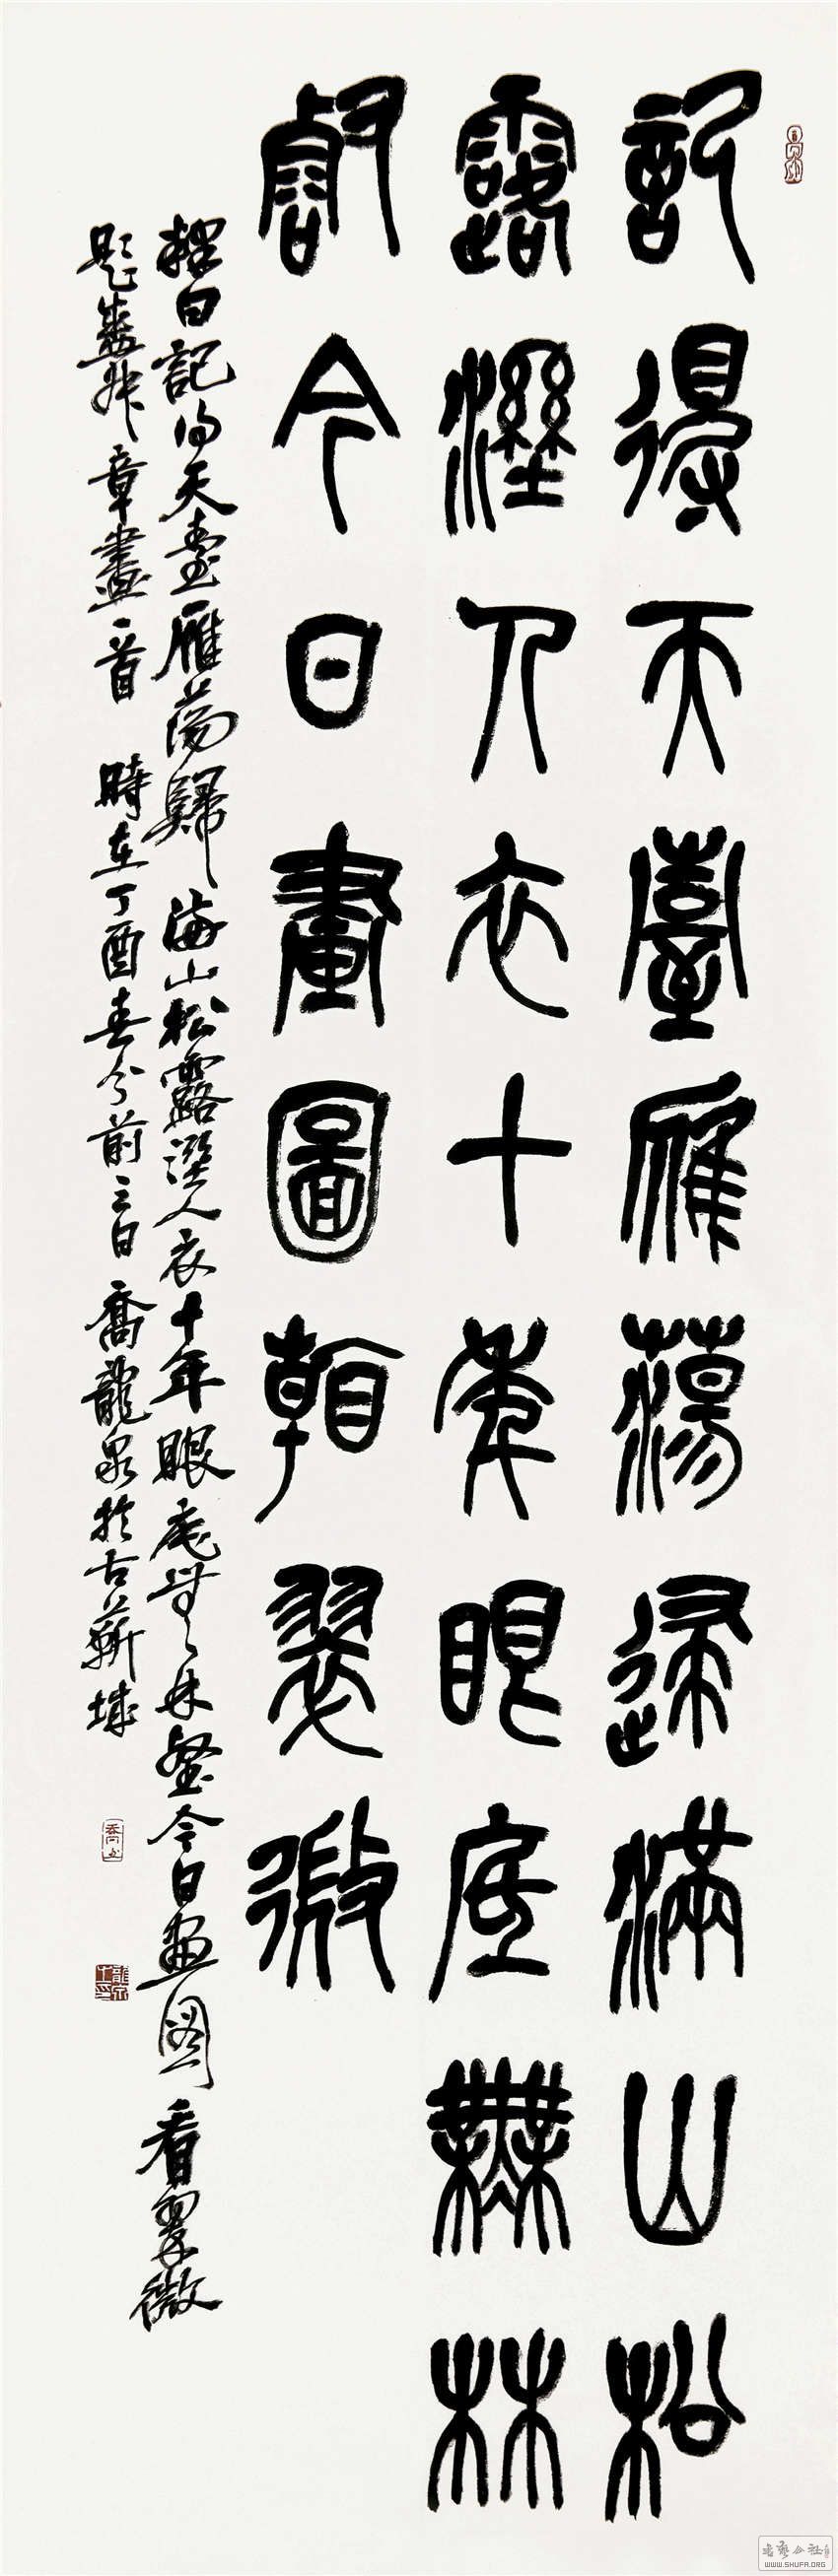 記得天臺雁蕩歸滿山松
露溼人衣十年眼底無林
壑今日畫圖看翠微
釋曰記得天臺雁蕩歸滿山松露溼人衣十年眼底無林壑今日畫圖看翠微
題 章畫一首 時在丁酉春分前三日喬龍泉於古蘄城
WWW.SHUFA.ORG